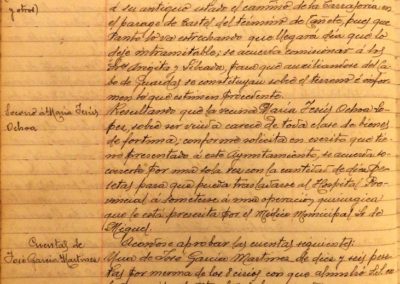 y otros)
á su antiguo estado el camino de la Carrasforia en
el parage de Castel del término de Cañete, pues que
tanto lo van estrechando que llegará dia que lo
deje intransitable; se acuerda comisionar á los
Sres Angito y Felrado, para que auxiliandose del ca-
bo de Guardas se constituyan sobre el terreno é infor-
men lo que estimen procedente.
Socorro á Maria Jesús
Ochoa.
Resultando que la vecina Maria Jesús Ochoa Lo-
pez, sobre ser viuda carece de toda clase de bienes
de fortuna, conforme solicita en escrito que tie-
ne presentado á este Ayuntamiento, se acuerda so-
correrla por una sola vez con la cantidad de diez Pe-
setas para que pueda trasladarse al Hospital Pro-
vincial á someterse á una operación quirurgica
que le está prescrita por el Médico Municipal Sr. de
Miguel.
Cuentas de
José Garcia Martinez
Acordose aprobar las cuentas siguientes:
Una de José Garcia Martinez de diez y seis pese-
tas por merma de los
con que alumbró el